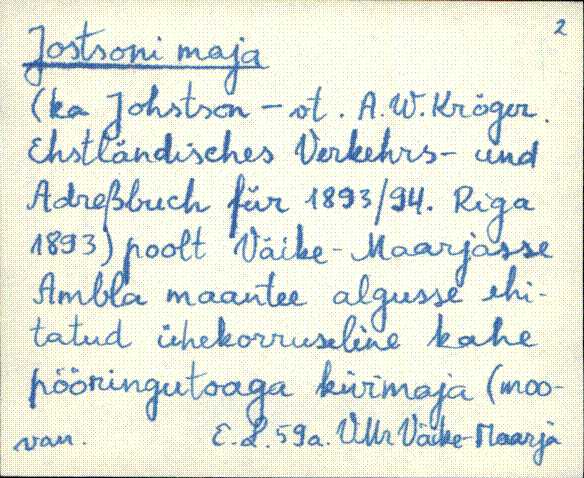 2
Jostsoni maja
(ka Johstson – vt. A.W. Kröger.
Ehstländisches Verkehrs- und
Adreßbuch für 1893/94. Riga
1893) poolt Väike-Maarjasse
Ambla maantee algusse ehi-
tatud ühekorruseline kahe
pööringutoaga kivimaja (moo-
van. E.L. 59a. VMr Väike-Maarja